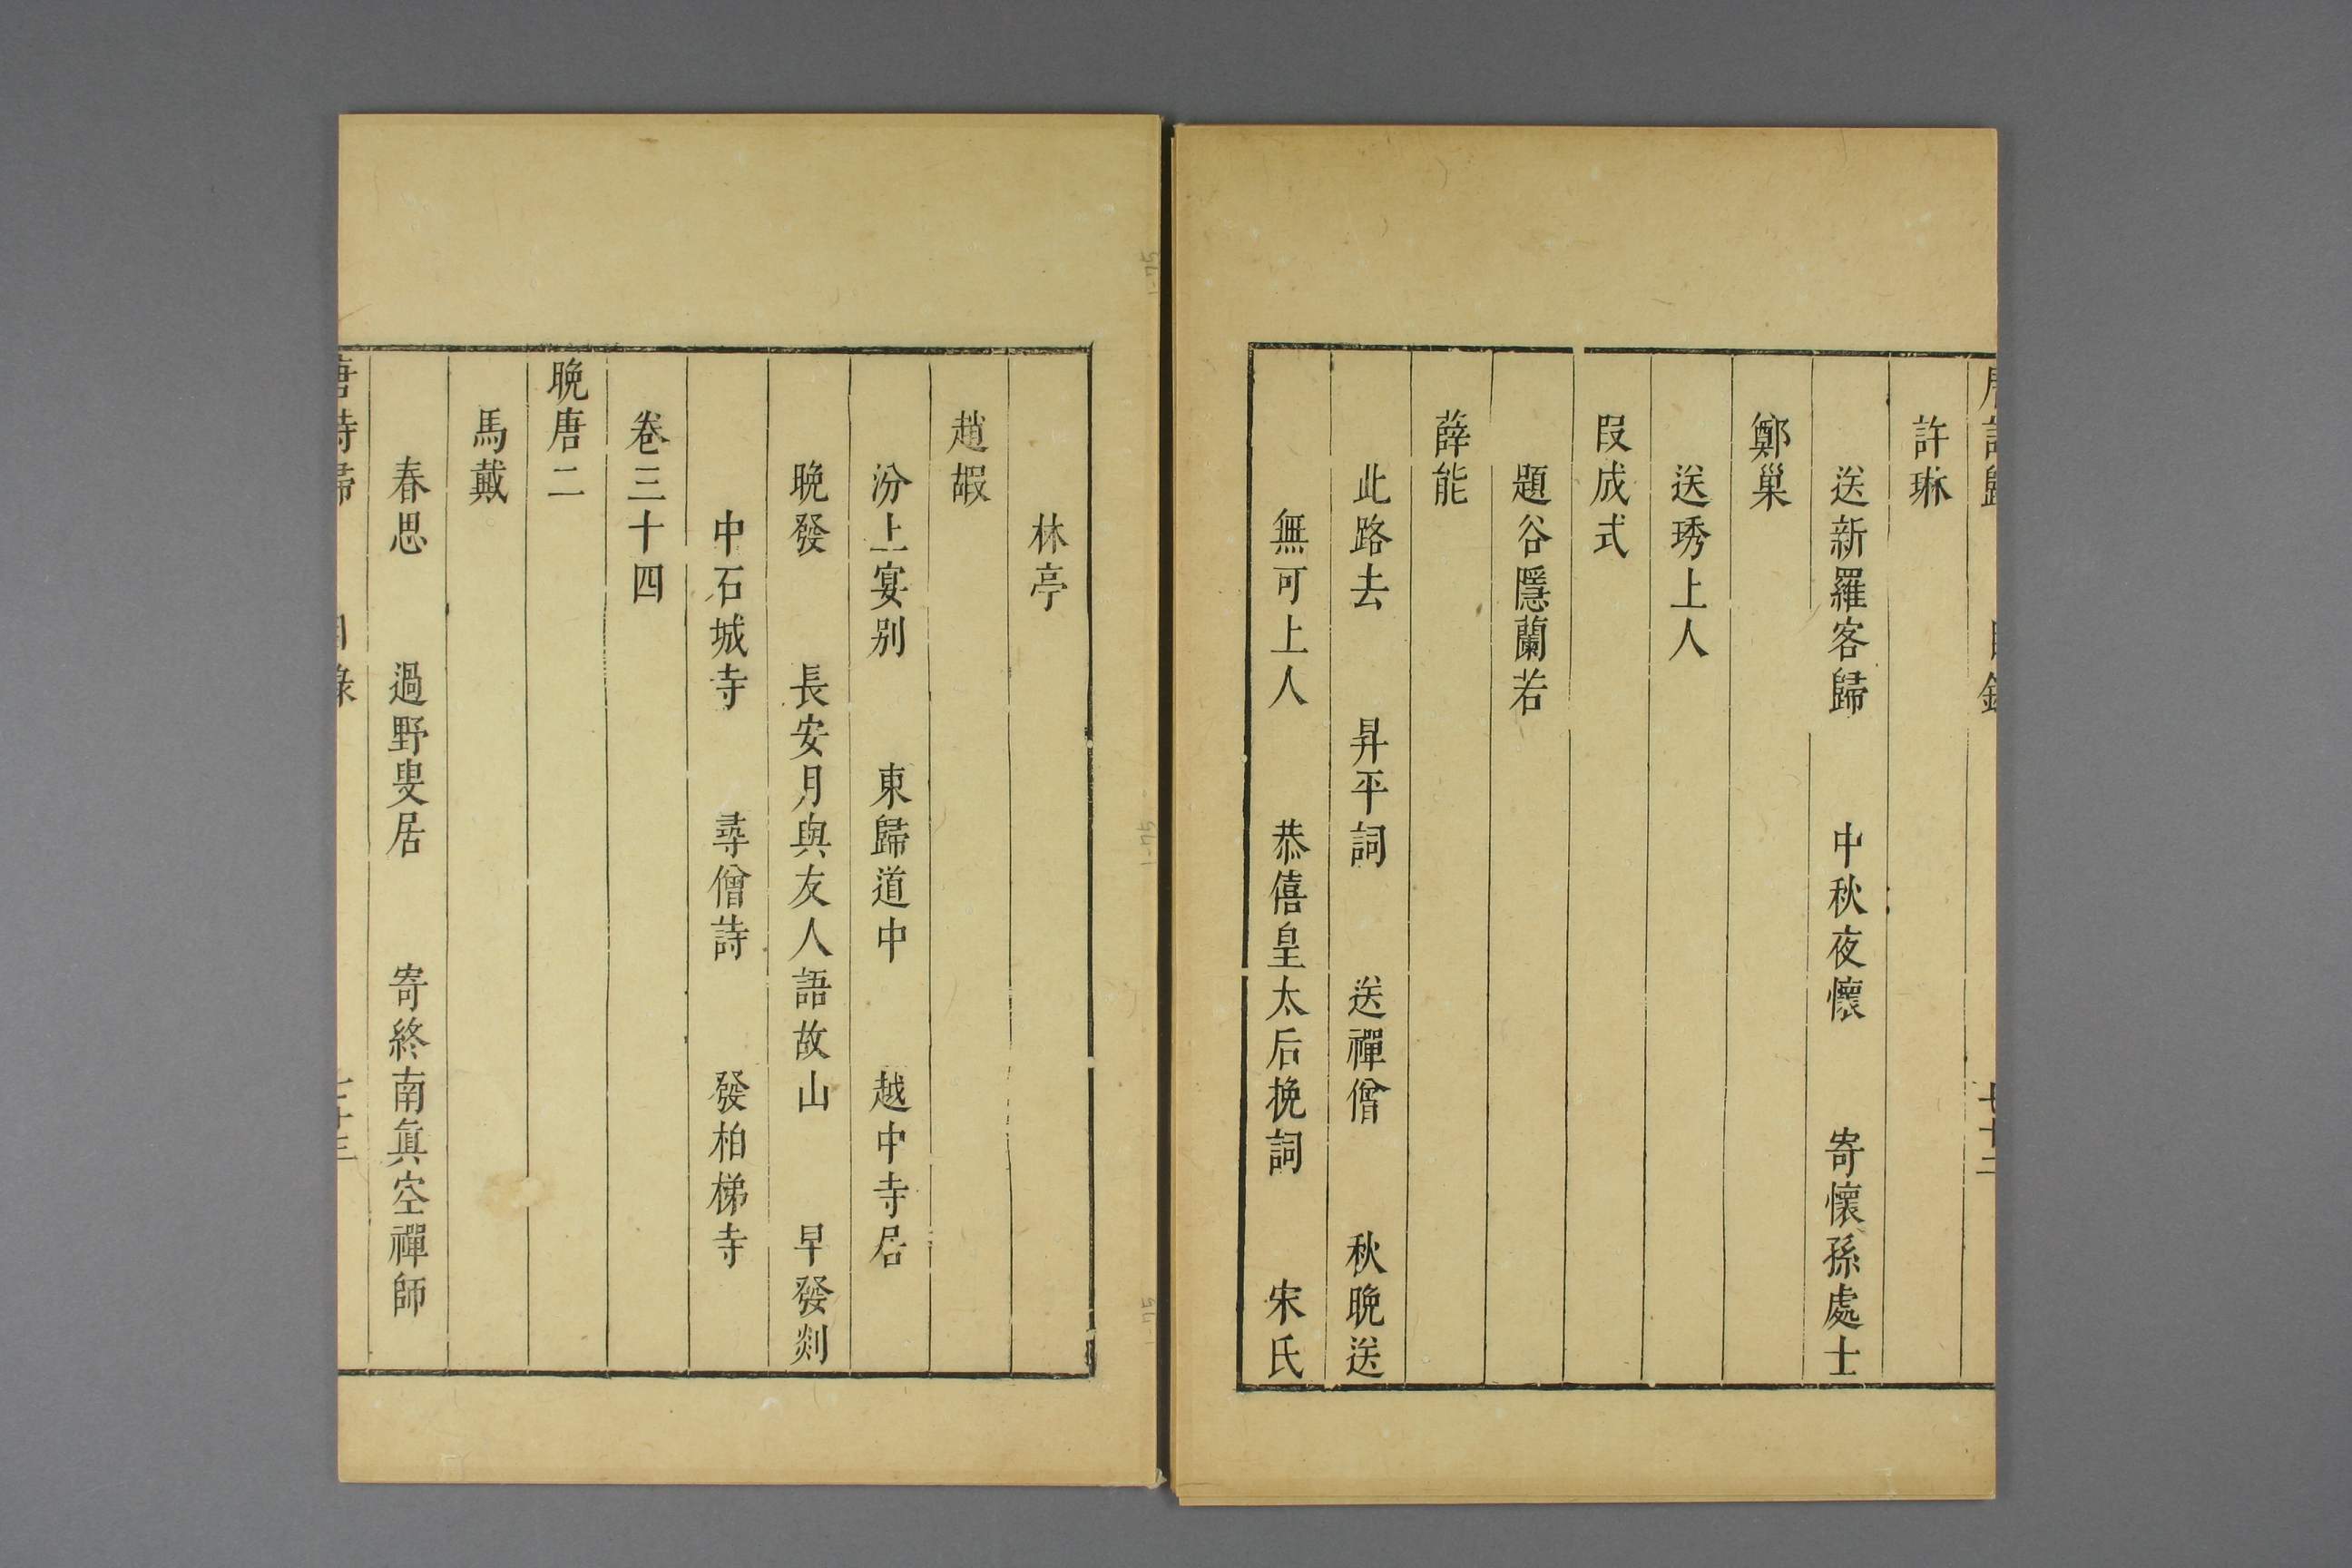 許琳
送新羅客歸 中秋夜懷 寄懷孫處士
鄭巢
送琇上人
段成式
題谷隱蘭若
薛能
此路去 昇平詞 送禪僧 秋晚送
無可上人 恭僖皇太后挽詞 宋氏
林亭
趙嘏
汾上宴别 東歸道中 越中寺居
晚發 長安月與友人語故山 早發剡
中石城寺 尋僧詩 發柏梯寺
卷三十四
晚唐二
馬戴
春思 過野叟居 寄終南眞空禪師
唐詩歸 目錄 七十三